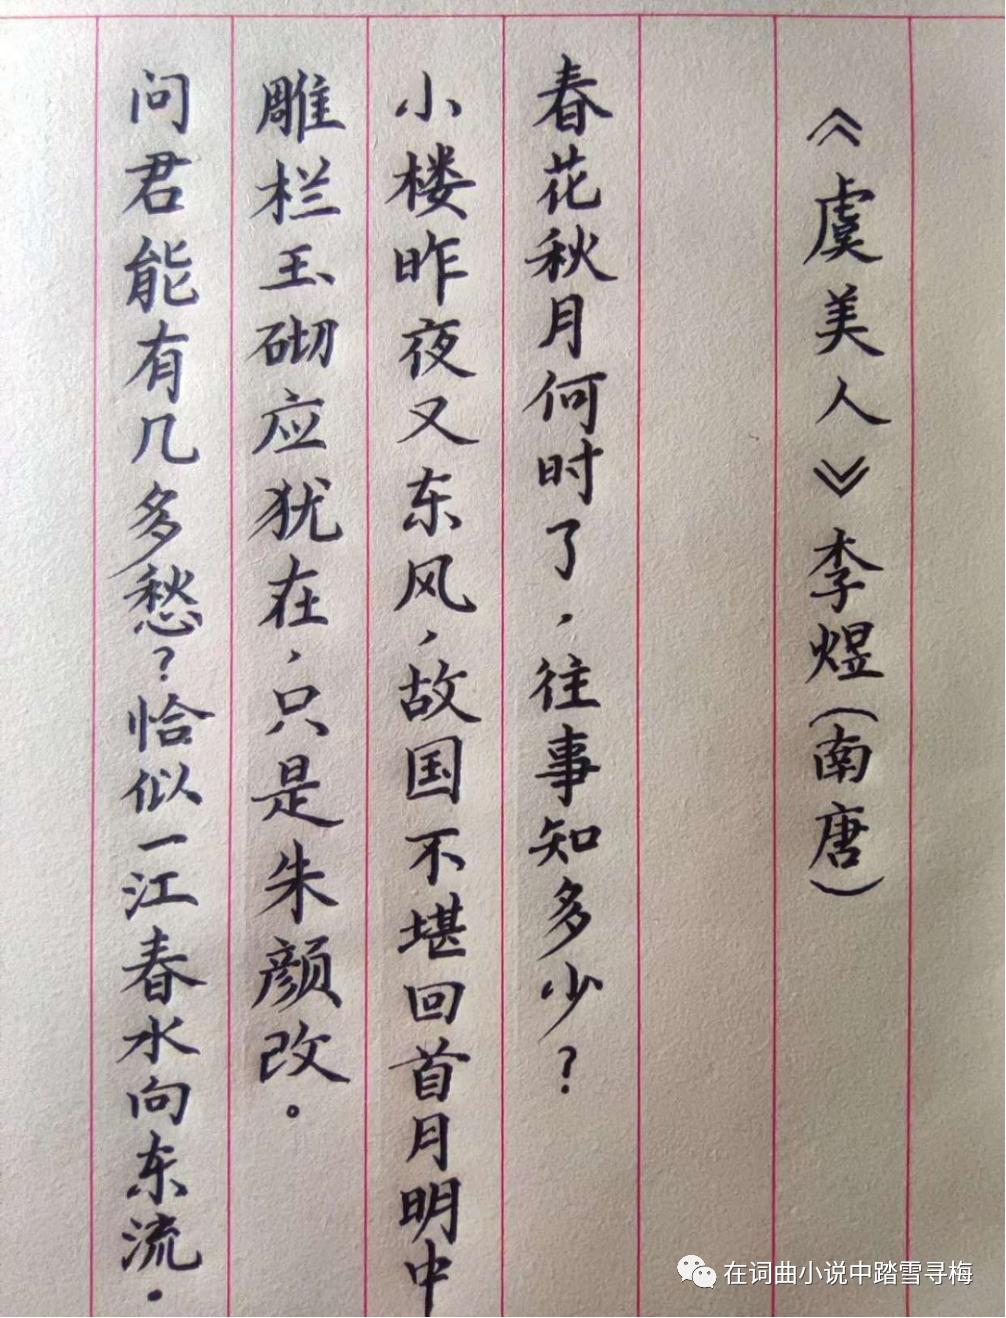 《虞美人》李煜（南唐）
春花秋月何时了，往事知多少？
小楼昨夜又东风，故国不堪回首月明中
雕栏玉砌应犹在，只是朱颜改。
问君能有几多愁？恰似一江春水向东流。
在词曲小说中踏雪寻梅